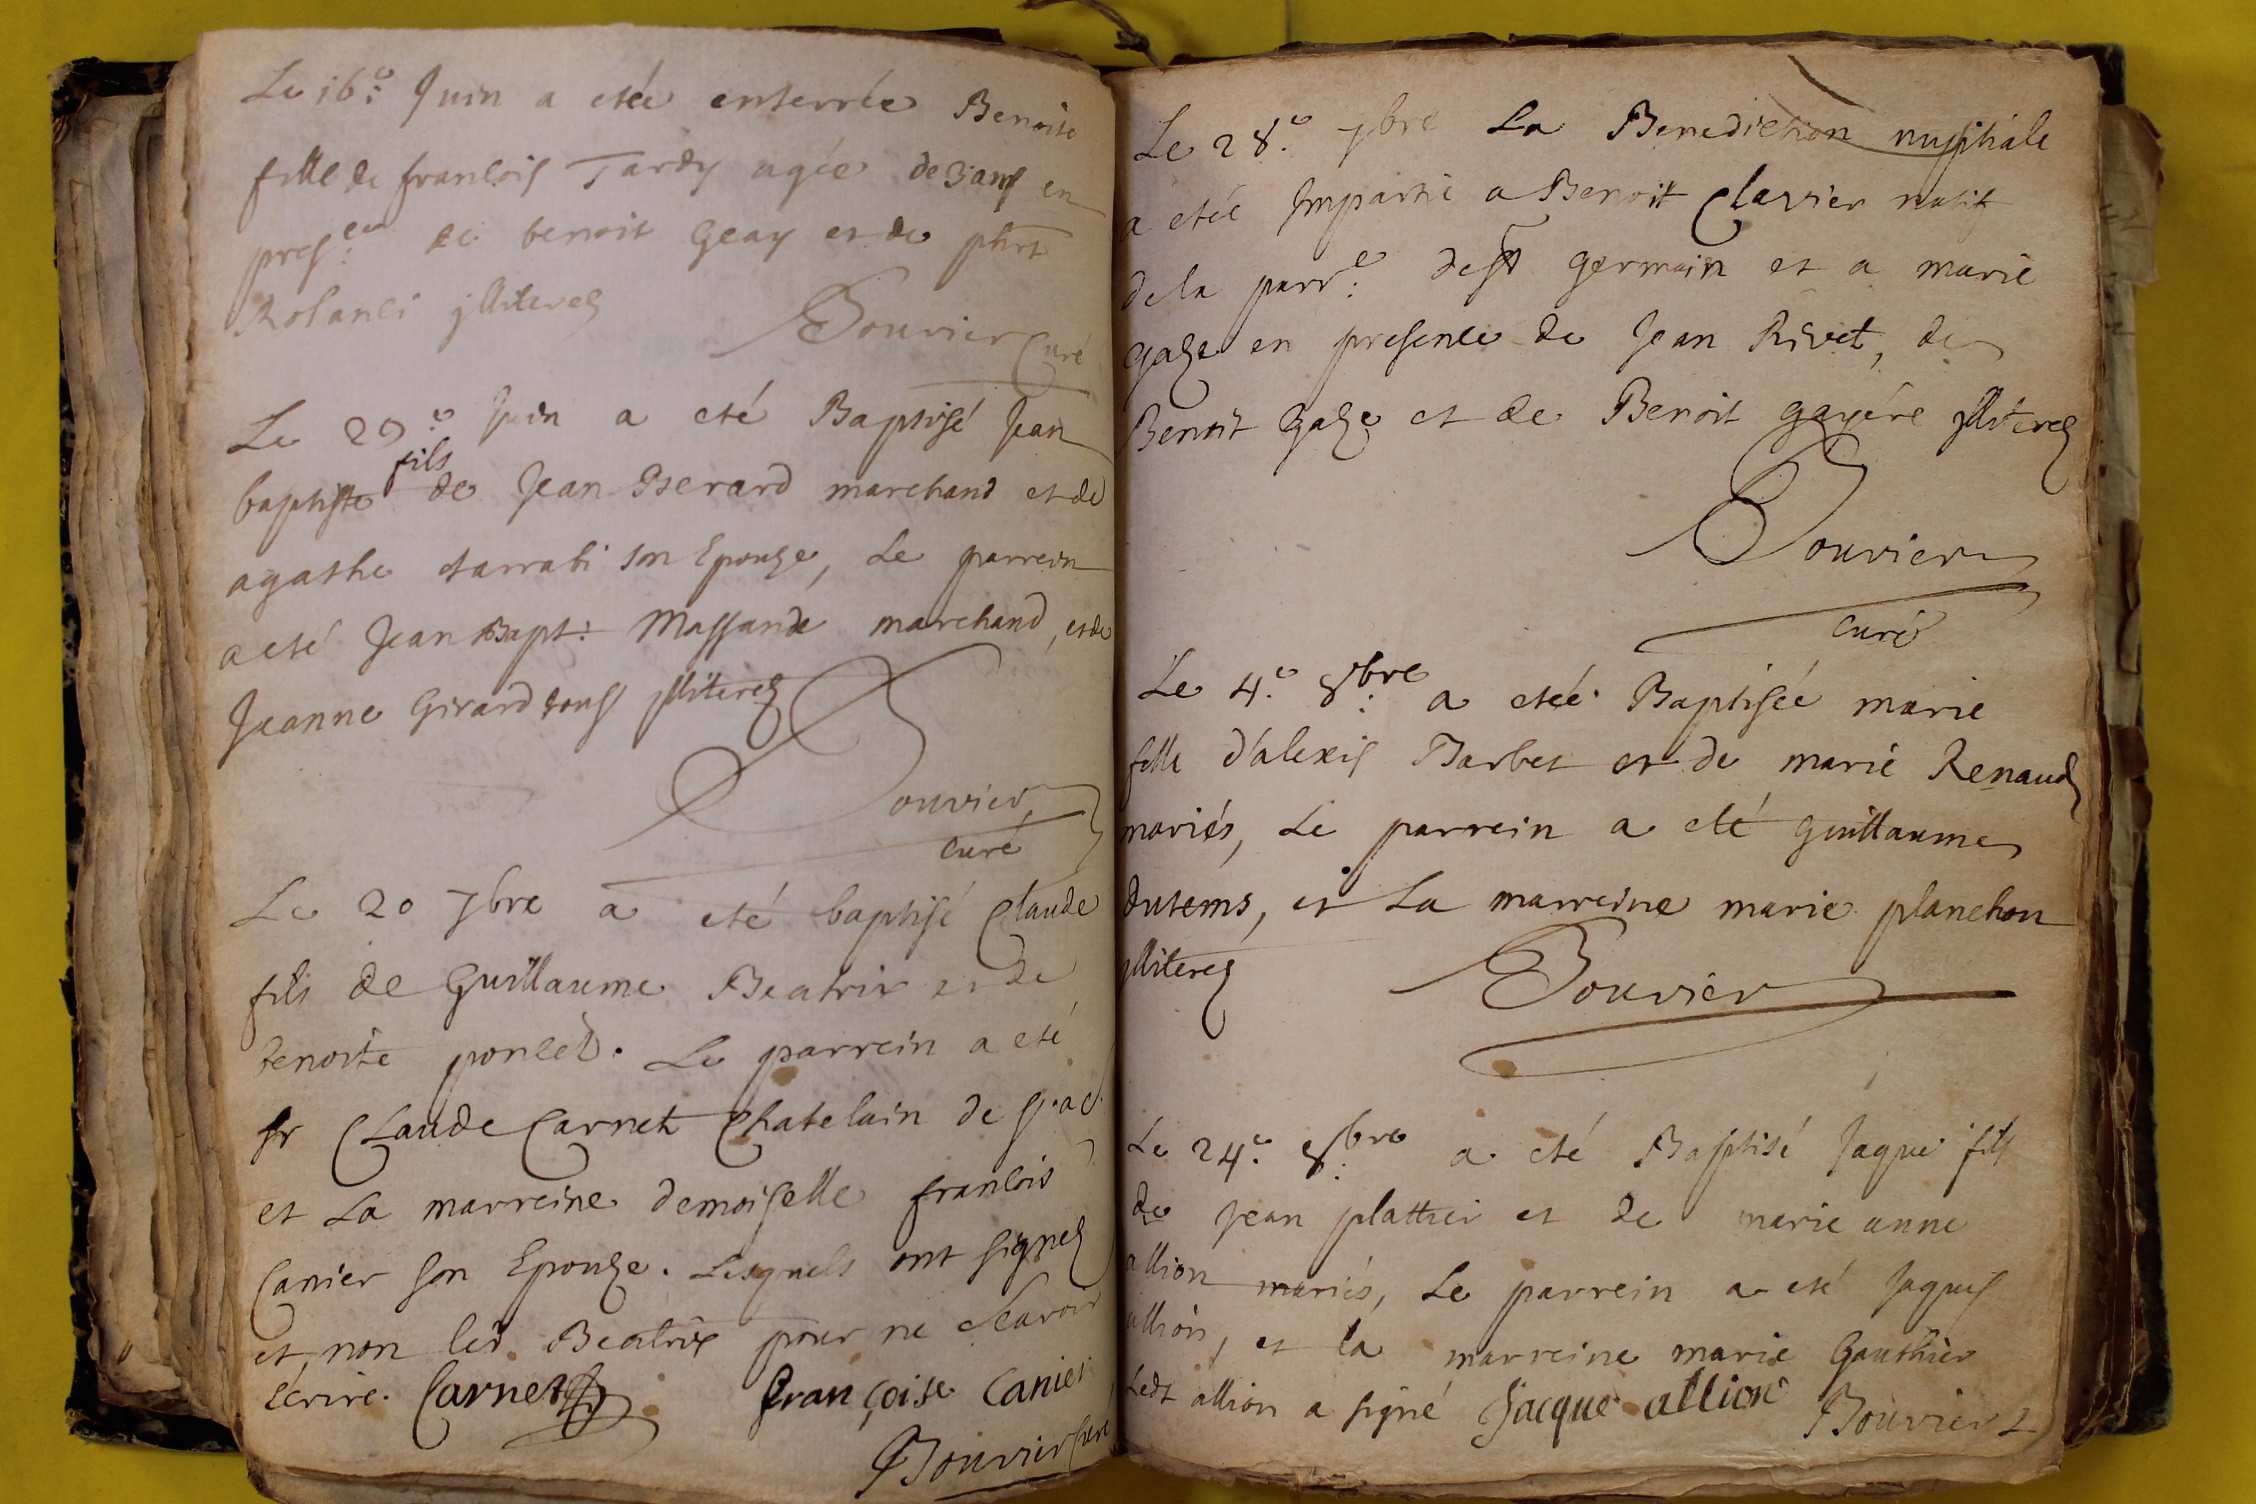 Le 16.e Juin a etée enterrée Benoite
fille de françois Tardy agée de 3 ans en
pres.ce de benoit Geay et de phrt
Rolanci jlliterez
Bouvier Curé
Le 29.e Juin a eté Baptisé Jean
fils
baptiste de Jean Berard marchand et de
agathe son Epouze, Le parrein
a eté Jean Bapt: Massande marchand, et de
Jeanne Girard tous jlliterez
Bouvier
curé
Le 20 7bre a eté baptisé Claude
fils de Guillaume Beatrix et de
benoite poncet. Le parrein a eté
sr Claude Carnet Chatelain de
et La marreine demoiselle francois
Canier son Epouze. Lesquels ont signez
et non led. Beatrix pour ne sçavoir
écrire. Carnet françoise Canier
Bouvier Curé
Le 28.e 7bre La Benediction nuptiale
a etée Jmpartie a Benoit Clavier natif
de la parr.e de st germain et a marie
gaze en presence de Jean Rivet, de
Benoit gaze et de Benoit gayére jlliterez
Bouvier
curé
Le 4.e 8.bre a etée Baptisée marie
fille d'alexis Barbet et de marie Renaud
mariés, Le parrein a eté guillaume
dutems, et La marreine marie planchon
jlliterez
Bouvier
Le 24.e 8.bre a eté Baptisé Jaque fils
de Jean plattier et de marie anne
allion mariés, Le parrein a eté Jaques
allion, et la marreine marie Gauthier
Ledt allion a signé Jacque allion Bouvier